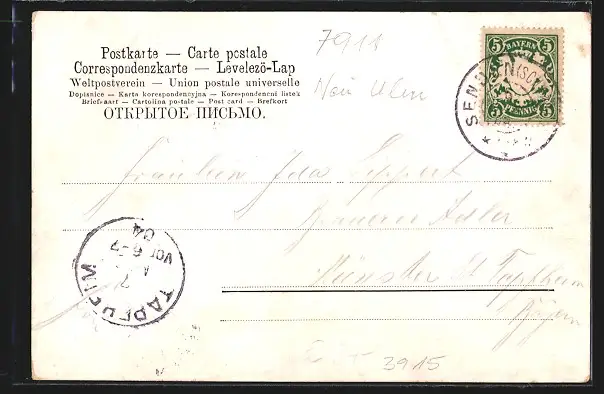 Postkarte — Carte postale
Correspondenzkarte — Levelező-Lap
Weltpostverein — Union postale universelle
Dopisnice — Karta korespondencyjna — Korespondenčni listek
Brief-kaart — Cartolina postale — Post card — Brefkort
ОТКРЫТОЕ ПИСЬМО.
7911
Neu Ulm
5 BAYERN 5
5 PFENNIG 5
Fräulein Ida
Brauerei Adler
Münster
Bayern
7
VOR 6-7
04
3915